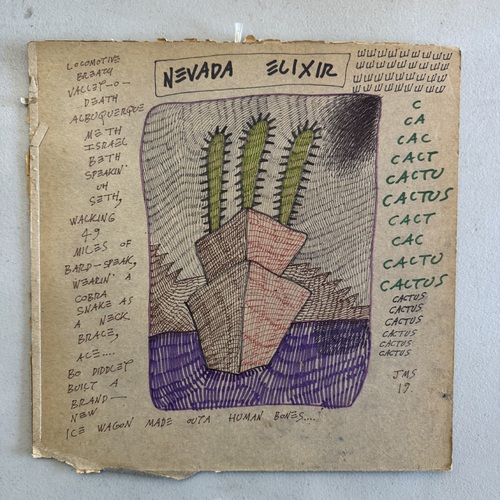 NEVADA ELIXIR
LOCOMOTIVE
BREATH
VALLEY-O-
DEATH
ALBUQUERQUE
METH
ISRAEL
BETH
SPEAKIN'
UH
SETH,
WALKING
49
MILES OF
BARD-SPEAK,
WEARIN' A
COBRA
SNAKE AS
A NECK
BRACE,
ACE....
BO DIDDLEY
BUILT A
BRAND-
NEW
ICE WAGON MADE OUTA HUMAN BONES....!
C
CA
CAC
CACT
CACTU
CACTUS
CACT
CAC
CACTU
CACTUS
CACTUS
CACTUS
CACTUS
CACTUS
CACTUS
CACTUS
JMS
19.